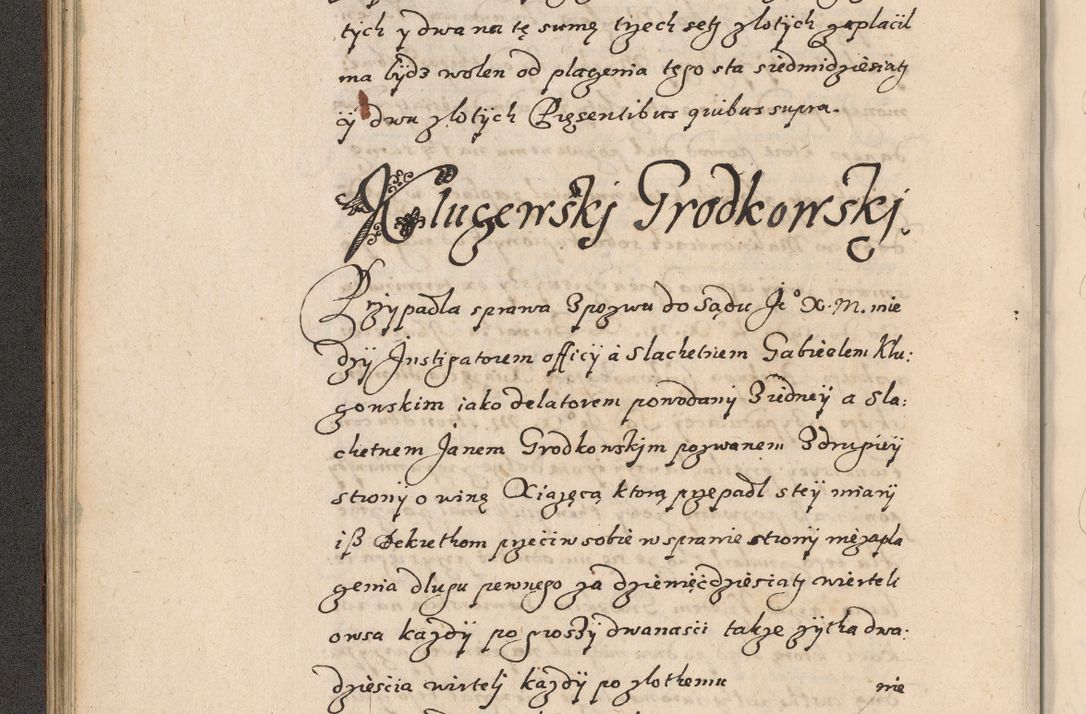 tych y dwa na tę sumę trzech seth złotych zapłacił
ma bydz wolen od płagenia tego sta siedmidziesiątj
ÿ dwu złotÿch Præsentibus quibus supra.
Klugewskj Grodkowskj
Przypadla sprawa z pozwu do Sądu Je° X. M. mie
dzÿ Instigatorem officÿ á Slachetnem Gabrielem Klu:
gowskim iako delatorem powodanÿ z iedneÿ a Sla:
chetnem Janem Grodkowskjm pozwanem z drugieÿ
stronÿ o winę Xiązęcą ktorą przepadl z teÿ miarÿ
iß Dekrethom przeciw sobie w sprawie stronÿ niezapła
genia dlugu pewnego za dziewięćdziesiątj wierteli
owsa kazdÿ po groszÿ dwanasci takze zÿtha dwa:
dziescia wirtelj kazdÿ po złothemu nie